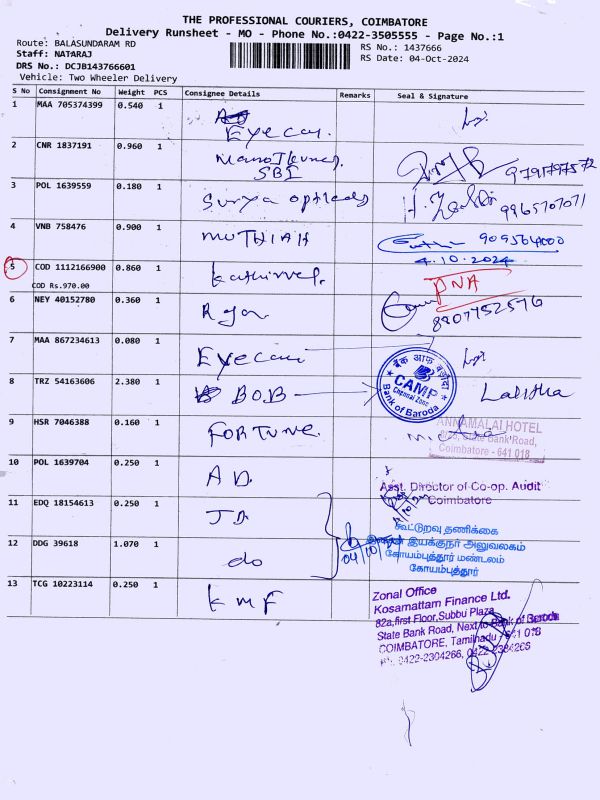 THE PROFESSIONAL COURIERS, COIMBATORE
Delivery Runsheet - MO - Phone No.:0422-3505555 - Page No.:1
Route: BALASUNDARAM RD
Staff: NATARAJ
DRS No.: DCJB143766601
Vehicle: Two Wheeler Delivery
RS No.: 1437666
RS Date: 04-Oct-2024
S No Consignment No Weight PCS Consignee Details Remarks Seal & Signature
1 MAA 705374399 0.540 1 Eyecan
2 CNR 1837191 0.960 1
SBI
9791797572
3 POL 1639559 0.180 1 Surya opticals
9965707071
4 VNB 758476 0.900 1 MUTHIAH
4.10.2024
5 COD 1112166900 0.860 1 Kathirvel DNA
COD Rs.970.00
6 NEY 40152780 0.360 1 Raja
8807752576
7 MAA 867234613 0.080 1 Eyecan
बैंक ऑफ बड़ौदा
CAMP
Chennai Zone
Bank of Baroda
8 TRZ 54163606 2.380 1 BOB Lalitha
9 HSR 7046388 0.160 1 FORTUNE
ANNAMALAI HOTEL
State Bank Road,
Coimbatore - 641 018
10 POL 1639704 0.250 1 A D.
Asst. Director of Co-op. Audit
Coimbatore
11 EDQ 18154613 0.250 1 J D
கூட்டுறவு தணிக்கை
இயக்குநர் அலுவலகம்
கோயம்புத்தூர் மண்டலம்
கோயம்புத்தூர்
12 DDG 39618 1.070 1 do
04/10
13 TCG 10223114 0.250 1 KMF
Zonal Office
Kosamattam Finance Ltd.
82a,first Floor,Subbu Plaza
State Bank Road, Next to Bank of Baroda
COIMBATORE, Tamilnadu - 641 018
Ph: 0422-2304266, 0422-2384266